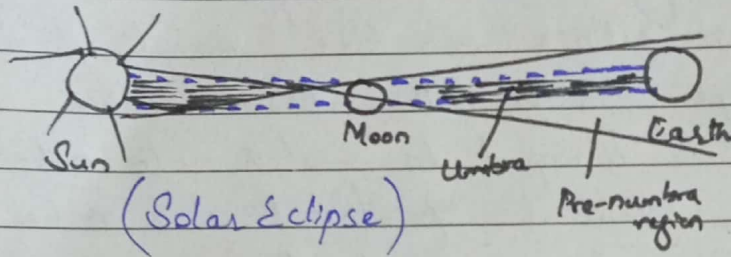 Sun
Moon
Earth
Umbra
Pre-numbra
region
(Solar Eclipse)